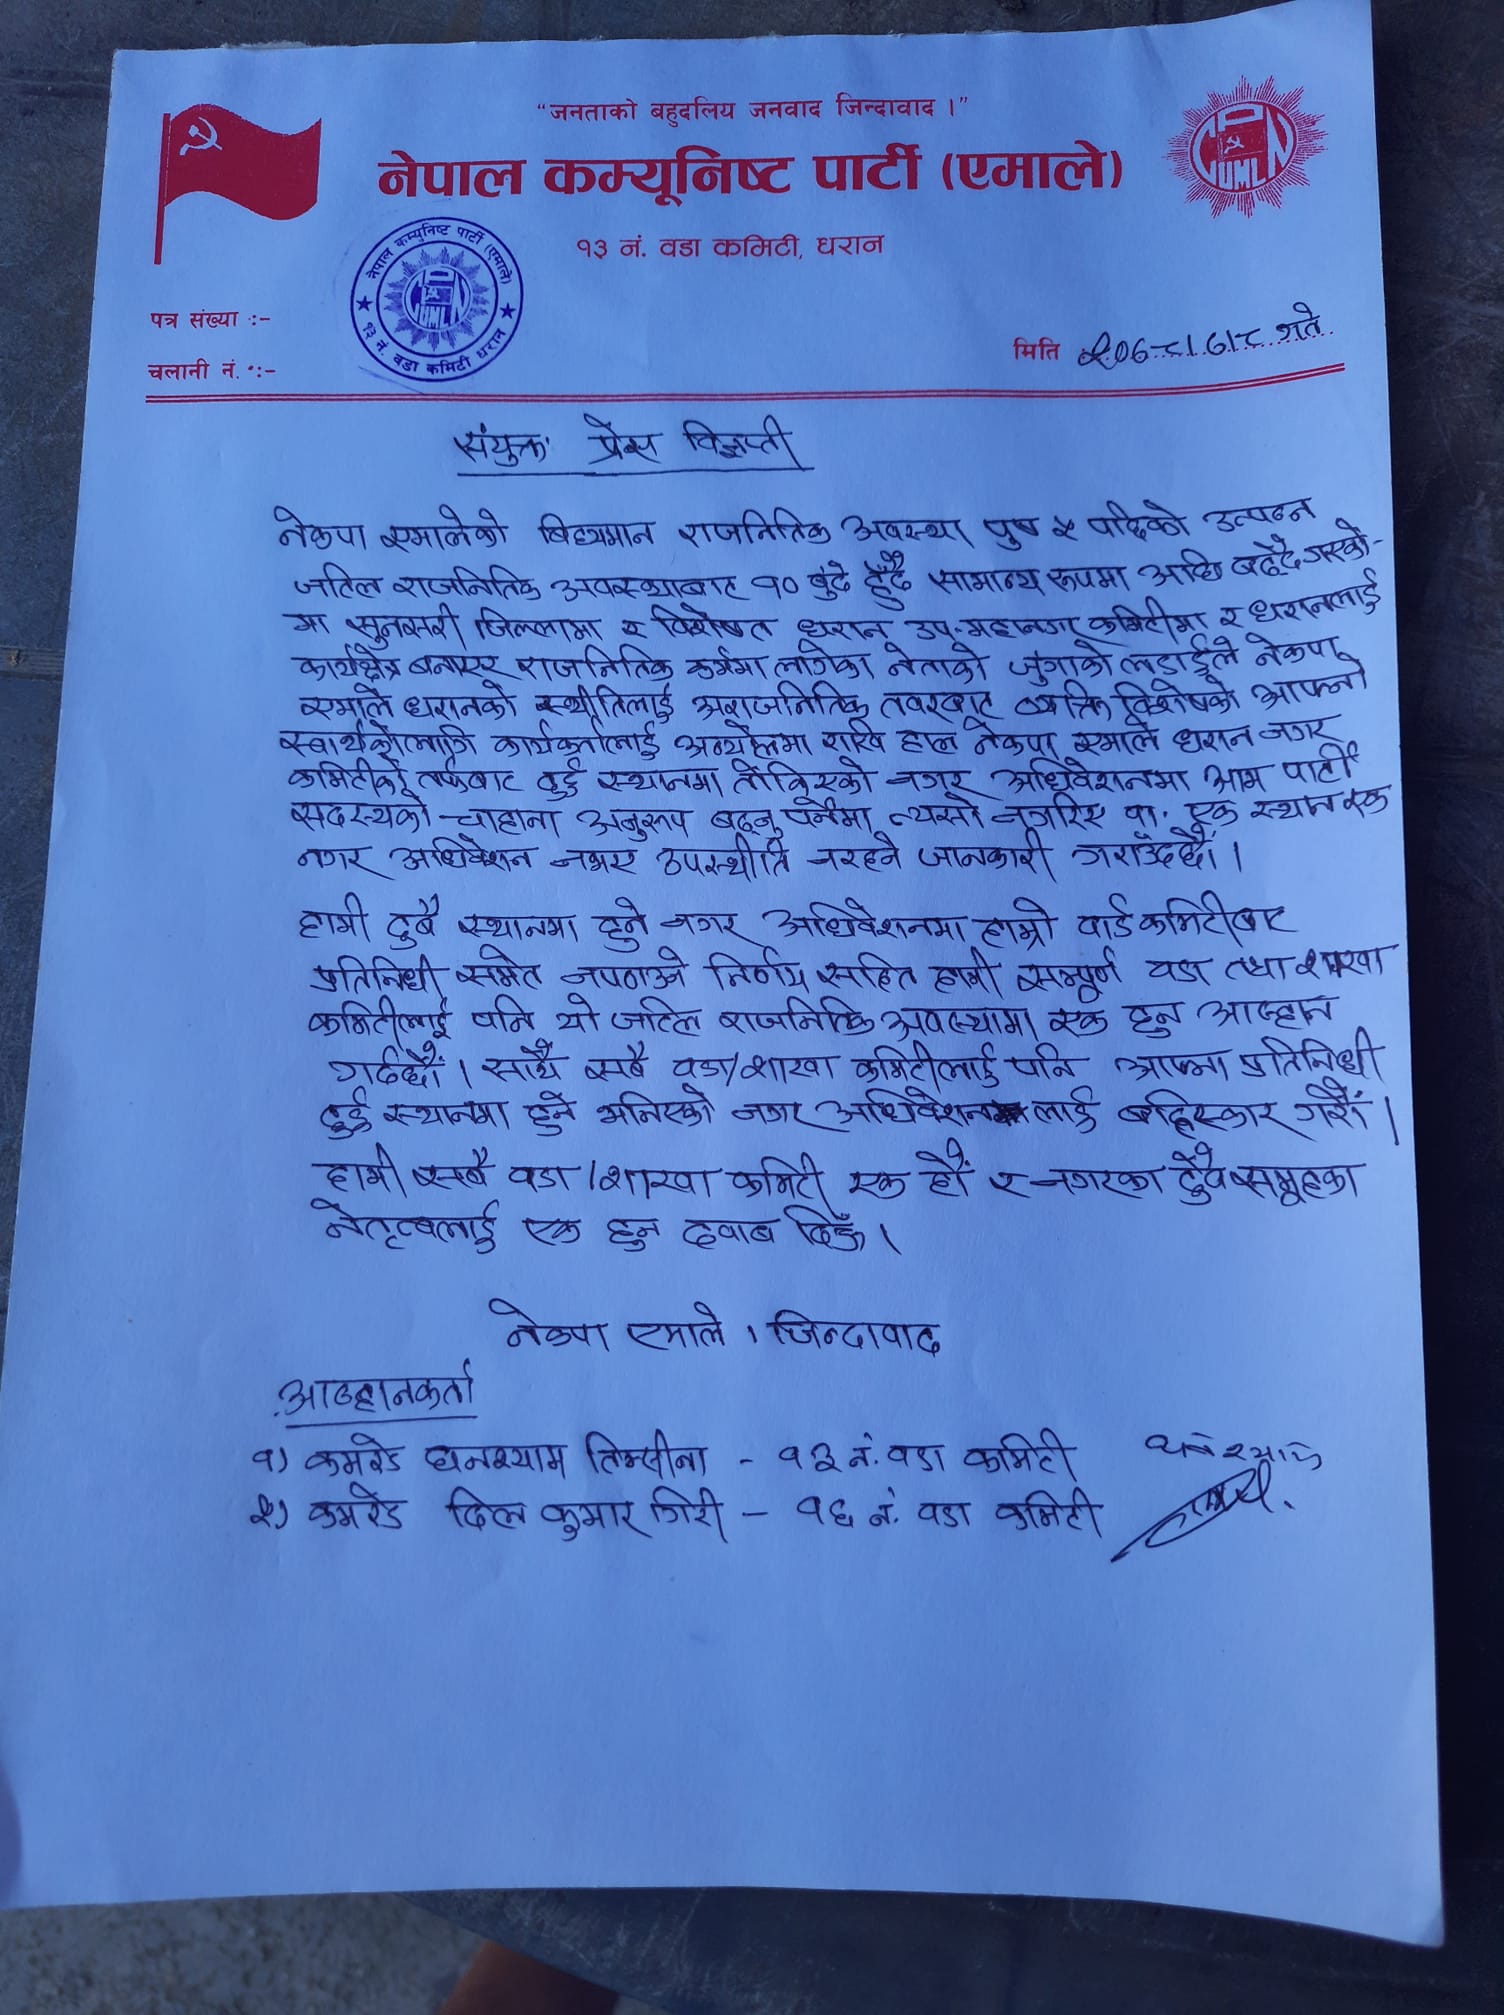 “जनताको बहुदलिय जनवाद जिन्दावाद ।”
नेपाल कम्यूनिष्ट पार्टी (एमाले)
१३ नं. वडा कमिटी, धरान
नेपाल कम्युनिष्ट पार्टी (एमाले)
१३ नं. वडा कमिटी धरान
पत्र संख्या :-
चलानी नं. :-
मिति २०७८।६।८ गते
संयुक्त प्रेस विज्ञप्ती
नेकपा एमालेको बिद्यमान राजनितिक अवस्था पुष ५ पछिको उत्पन्न
जटिल राजनितिक अवस्थाबाट १० बुंदे हुँदै सामान्य रूपमा अघि बढ्दै गएको-
मा सुनसरी जिल्लामा र विशेषत धरान उप-महानगर कमिटीमा र धरानलाई
कार्यक्षेत्र बनाएर राजनितिक कर्ममा लागेका नेताको जुंगाको लडाईले नेकपा
एमाले धरानको स्थीतिलाई अराजनितिक तवरबाट व्यक्ति विशेषको आफ्नो
स्वार्थकोलागि कार्यकर्तालाई अन्योलमा राखि हाल नेकपा एमाले धरान नगर
कमिटीको तर्फबाट दुई स्थानमा तोकिएको नगर अधिवेशनमा आम पार्टी
सदस्यको चाहाना अनुरूप बढ्नु पर्नेमा त्यसो नगरिए वा. एक स्थान एक
नगर अधिवेशन नभए उपस्थीति नरहने जानकारी गराउँदछौं ।
हामी दुबै स्थानमा हुने नगर अधिवेशनमा हाम्रो वार्ड कमिटीबाट
प्रतिनिधी समेत नपठाउने निर्णय सहित हामी सम्पूर्ण वडा तथा शाखा
कमिटीलाई पनि यो जटिल राजनितिक अवस्थामा एक हुन आव्हान
गर्दछौं । साथै सबै वडा/शाखा कमिटीलाई पनि आफ्ना प्रतिनिधी
दुई स्थानमा हुने भनिएको नगर अधिवेशनलाई बहिस्कार गरौं ।
हामी सबै वडा/शाखा कमिटी एक हौं र नगरका दुवै समूहका
नेतृत्वलाई एक हुन दवाब दिऊँ ।
नेकपा एमाले । जिन्दावाद
आव्हानकर्ता
१) कमरेड घनश्याम तिम्सीना - १३ नं. वडा कमिटी
२) कमरेड दिल कुमार गिरी - १६ नं. वडा कमिटी